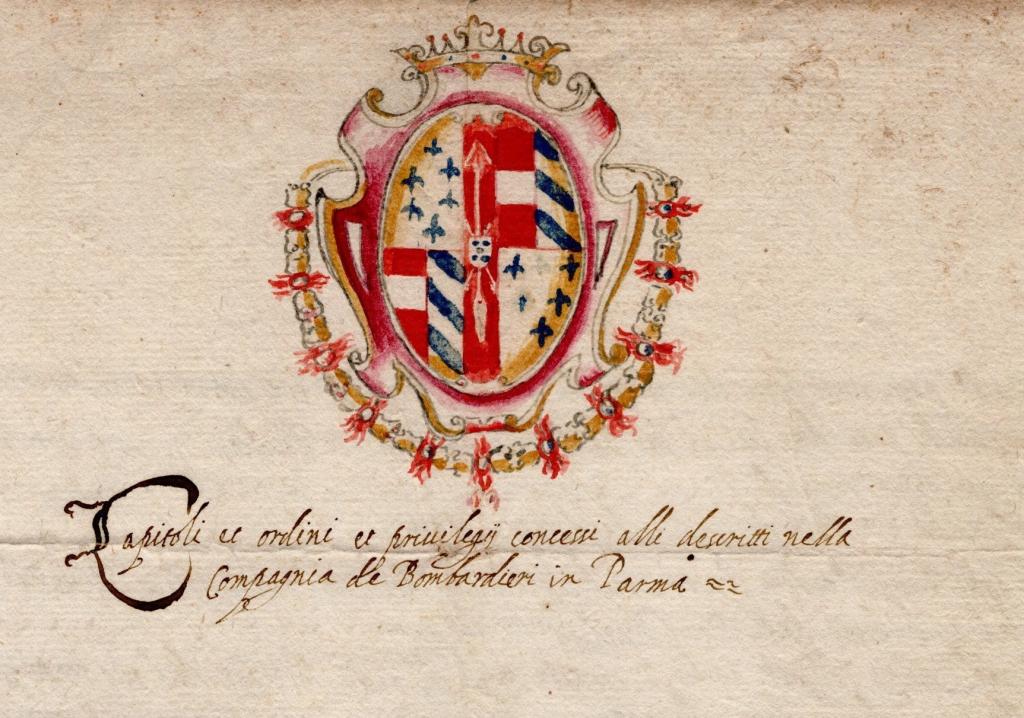 Capitoli et ordini et privilegij concessi alli descritti nella
Compagnia de Bombardieri in Parma